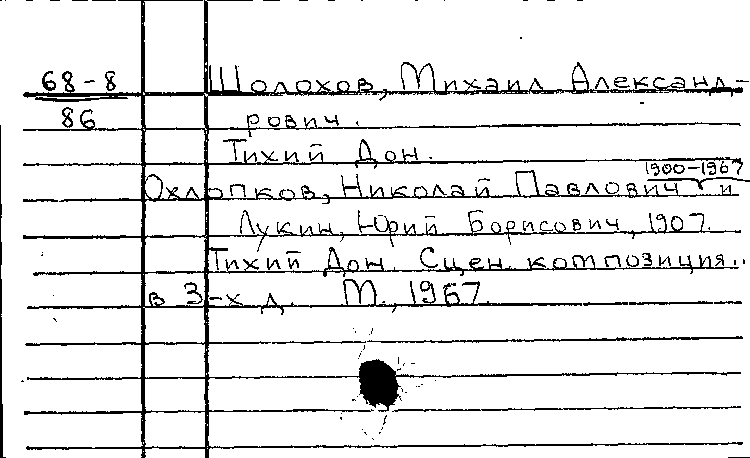 68-8 Шолохов, Михаил Александ-
86 рович.
Тихий Дон.
1900-1967
Охлопков, Николай Павлович и
Лукин, Юрий Борисович, 1907.
Тихий Дон. Сцен. композиция..
в 3-х д. М., 1967.